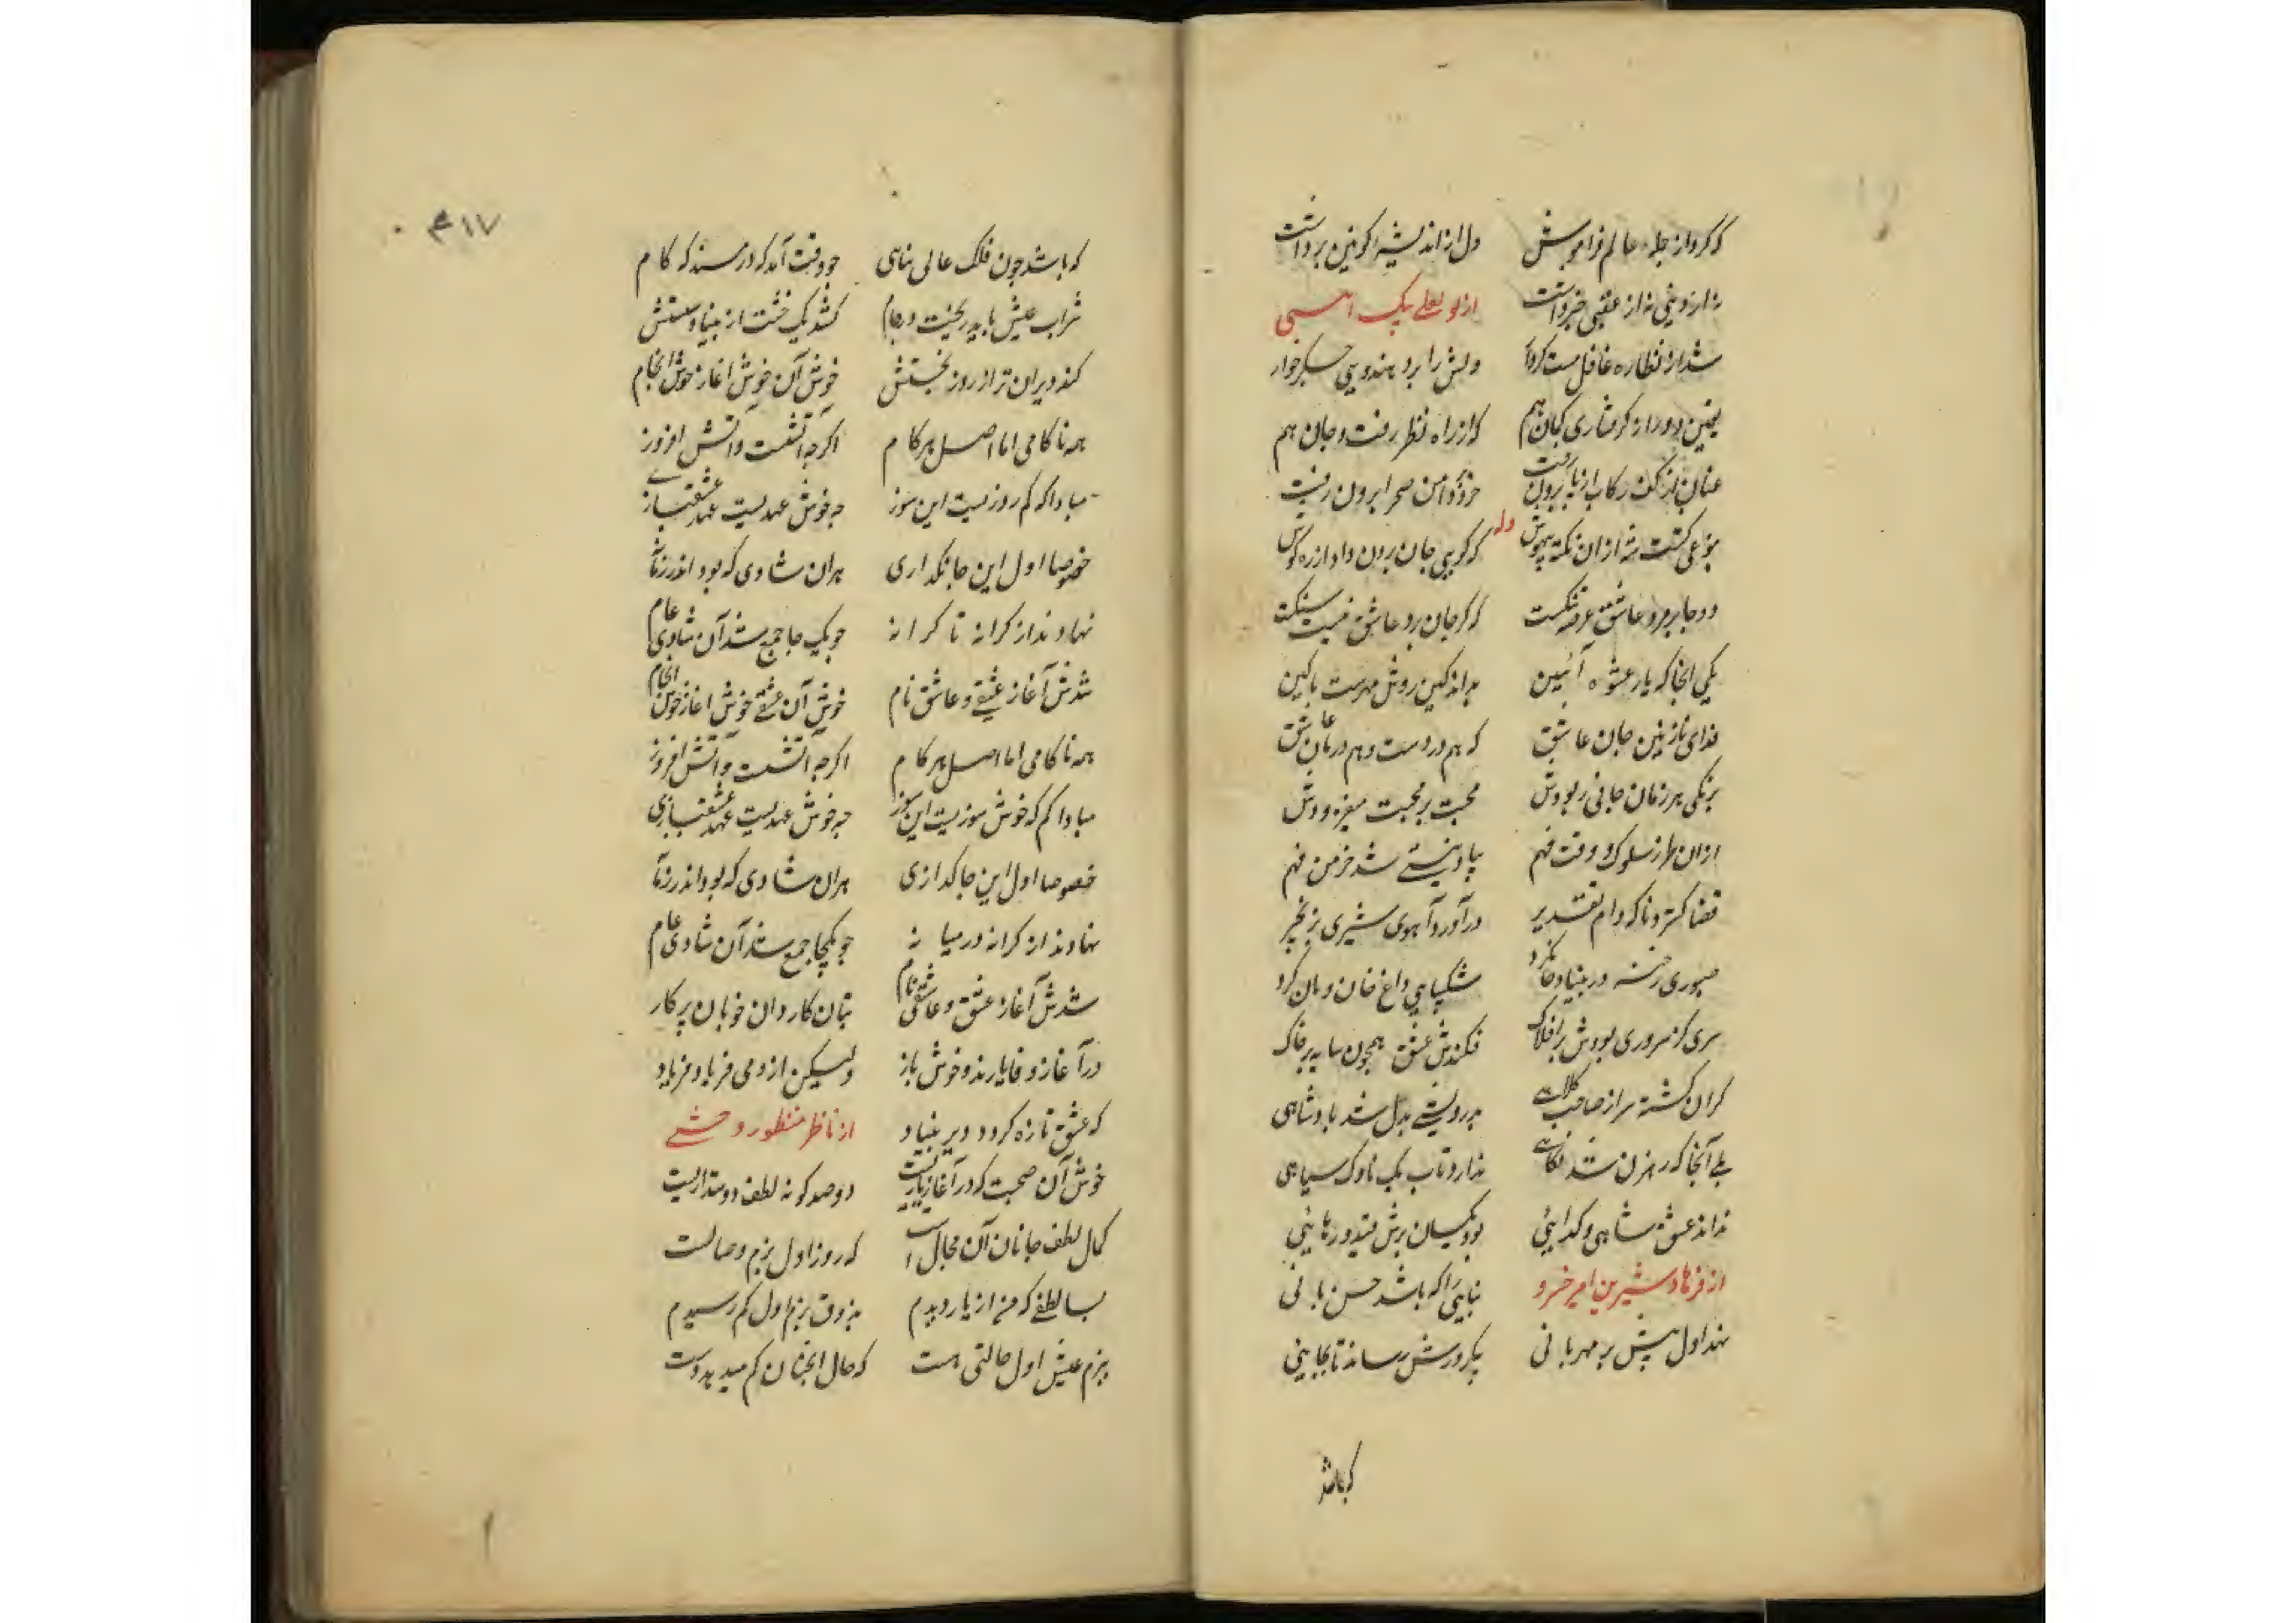 که کرد از جمله عالم فراموش دل از اندیشه کونین برداشت
نه از دنیی نه از عقبی خبر داشت از لو لعلی بیک
شد از نظاره غافل مست کردار دلش را برد هندویی جگرخوار
یقین دور از گرفتاری کمان هم که از راه نظر رفت و جان هم
عنان از کف رکاب از پا برون رفت خرد دامن صحرا برون رفت
بنوعی گشت شه از ان نکته بیهوش وله که گویی جان برون داد از ره گوش
دو جا بر مرد عاشق عرصه تنگست که گر جان برد عاشق نیست سنگست
یکی انجا که یار عشوه آئین بداند کین روش مهرست یا کین
فدای نازنین جان عاشق که هم دردست و هم درمان عاشق
برنگی هر زمان جانی ربودش محبت بر محبت میفزودش
ازان طرز سلوک و وقت فهم بباد نیستی شد خرمن فهم
قضا گسترد ناگه دام تقدیر درآورد آهوی شیری بزنجیر
صبوری رخنه در بنیاد جا کرد شکیبایی داغ خان و مان کرد
سری کز سروری بودش بر افلاک فکندش عشق همچون سایه بر خاک
گران گشته سر از صاحب کلاهی بدرویشی بدل شد پادشاهی
بلی آنجا که رهزن شد نگاهی ندارد تاب یک ناوک سپاهی
نداند عشق شاهی و گدایی بود یکسان برش قید و رهایی
از فرهاد شیرین امیر خسرو بنایی را که باشد حسن بانی
نهد اول پیش بر مهربانی بیکروزش رساند تا بجایی
که باشد
۴۱۷
که باشد چون فلک عالی بناهی چو وقت آمد که در مسند که کام
شراب عیش باید ریخت در جام کشد یک خشت از بنیاد سستش
کند ویران تر از روز نخستش خوش آن خوش اغاز خوش انجام
همه ناکامی اما اصل هر کام اگرچه آتشست و آتش افروز
مبادا که کم روزیست این سوز چه خوش عهدیست عهد عشقبازی
خصوصا اول این جانگدازی هران شادی که بود اندر زمانه
نهادند از کرانه تا کرانه چو یک جا جمع شد آن شادی عام
شدش آغاز عشقی و عاشق نام خوش آن عشقی خوش اغاز خوش انجام
همه ناکامی اما اصل هر کام اگرچه آتشست و آتش افروز
مبادا کم که خوش سوزیست این سوز چه خوش عهدیست عهد عشقبازی
خصوصا اول این جانگدازی هران شادی که بود اندر زمانه
نهادند از کرانه در میانه چو یکجا جمع شد آن شادی عام
شدش آغاز عشق و عاشقی نام بتان کاردان خوبان پرکار
در آغاز وفا یارند و خوش یار ولیکن از دمی فریاد فریاد
که عشق تازه گردد دیر بنیاد از ناظر منظور وحشی
خوش آن صحبت که در آغاز یاریست دو صد گونه لطف دوستداریست
کمال لطف جانان آن مجال است که روز اول بزم وصالست
بسا لطفی که من از یار دیدم بذوق بزم اول کم رسیدم
ببزم عیش اول حالتی هست که حال انچنان کم میدهد دست